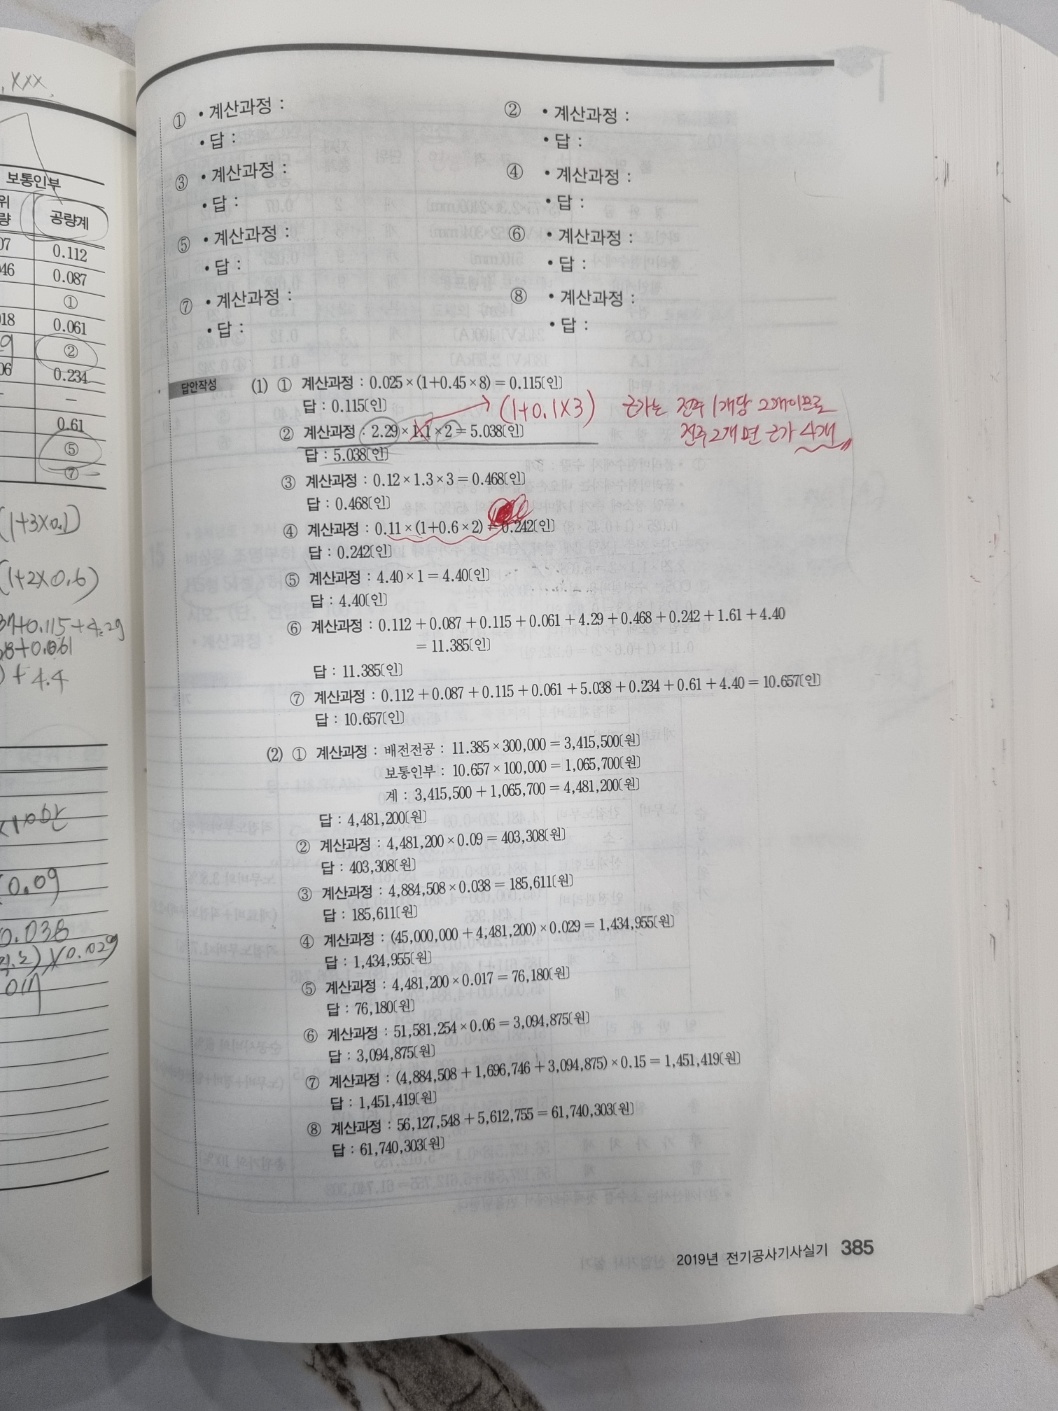 , XXX.
보통인부
공량계
0.112
0.087
①
0.061
②
0.234
–
0.61
⑤
⑦
(1+3×0.1)
(1+2×0.6)
① • 계산과정 :
• 답 :
② • 계산과정 :
• 답 :
③ • 계산과정 :
• 답 :
④ • 계산과정 :
• 답 :
⑤ • 계산과정 :
• 답 :
⑥ • 계산과정 :
• 답 :
⑦ • 계산과정 :
• 답 :
⑧ • 계산과정 :
• 답 :
답안작성
(1) ① 계산과정 : 0.025×(1+0.45×8) = 0.115[인]
답 : 0.115[인]
(1+0.1×3)
근가는 전주 1개당 2개이므로
전주 2개면 근가 4개
② 계산과정 : 2.29×1.1×2 = 5.038[인]
답 : 5.038[인]
③ 계산과정 : 0.12×1.3×3 = 0.468[인]
답 : 0.468[인]
④ 계산과정 : 0.11×(1+0.6×2) = 0.242[인]
답 : 0.242[인]
⑤ 계산과정 : 4.40×1 = 4.40[인]
답 : 4.40[인]
⑥ 계산과정 : 0.112+0.087+0.115+0.061+4.29+0.468+0.242+1.61+4.40
= 11.385[인]
답 : 11.385[인]
⑦ 계산과정 : 0.112+0.087+0.115+0.061+5.038+0.234+0.61+4.40 = 10.657[인]
답 : 10.657[인]
(2) ① 계산과정 : 배전전공 : 11.385×300,000 = 3,415,500[원]
보통인부 : 10.657×100,000 = 1,065,700[원]
계 : 3,415,500+1,065,700 = 4,481,200[원]
답 : 4,481,200[원]
② 계산과정 : 4,481,200×0.09 = 403,308[원]
답 : 403,308[원]
③ 계산과정 : 4,884,508×0.038 = 185,611[원]
답 : 185,611[원]
④ 계산과정 : (45,000,000+4,481,200)×0.029 = 1,434,955[원]
답 : 1,434,955[원]
⑤ 계산과정 : 4,481,200×0.017 = 76,180[원]
답 : 76,180[원]
⑥ 계산과정 : 51,581,254×0.06 = 3,094,875[원]
답 : 3,094,875[원]
⑦ 계산과정 : (4,884,508+1,696,746+3,094,875)×0.15 = 1,451,419[원]
답 : 1,451,419[원]
⑧ 계산과정 : 56,127,548+5,612,755 = 61,740,303[원]
답 : 61,740,303[원]
2019년 전기공사기사실기 385